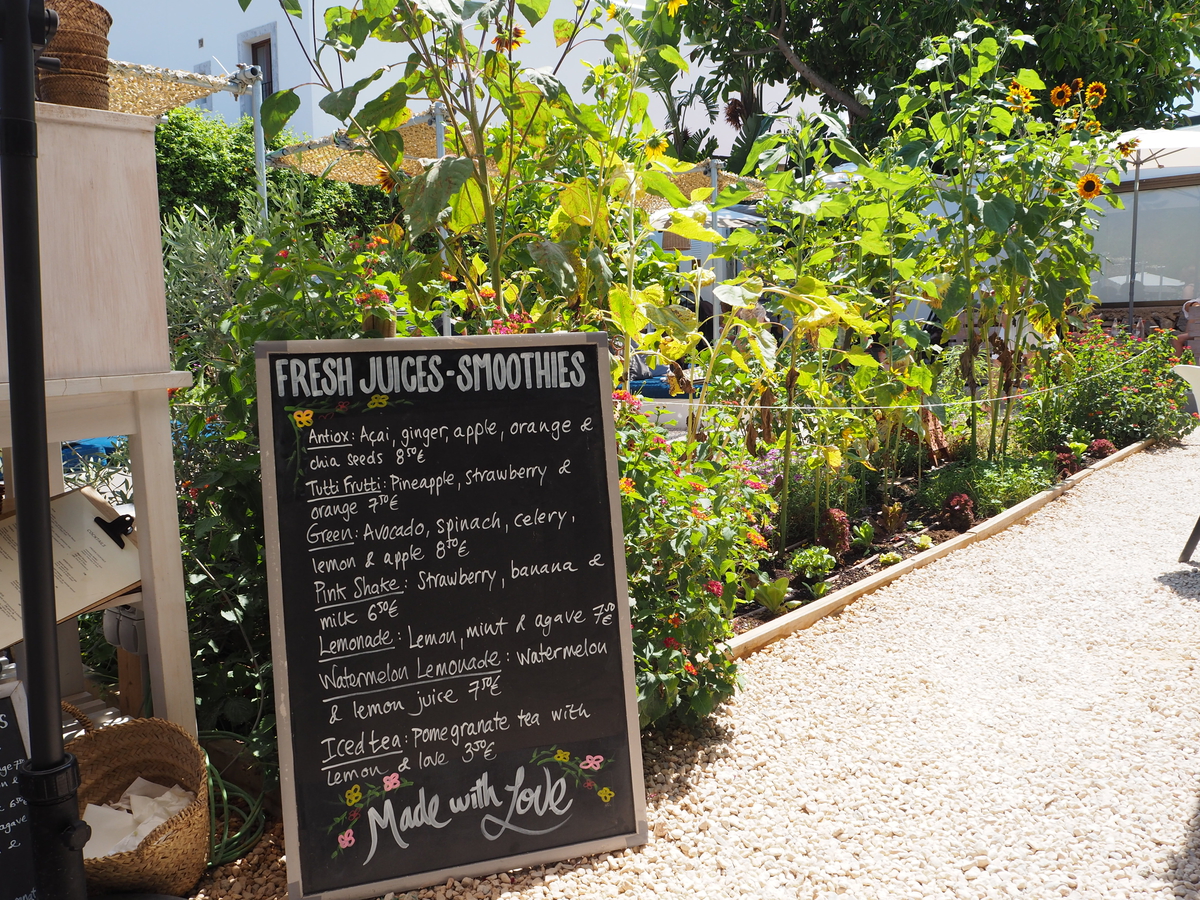 FRESH JUICES-SMOOTHIES
Antiox: Açai, ginger, apple, orange &
chia seeds 8⁵⁰€
Tutti Frutti: Pineapple, strawberry &
orange 7⁵⁰€
Green: Avocado, spinach, celery,
lemon & apple 8⁵⁰€
Pink Shake: Strawberry, banana &
milk 6⁵⁰€
Lemonade: Lemon, mint & agave 7⁵⁰€
Watermelon Lemonade: Watermelon
& lemon juice 7⁵⁰€
Iced tea: Pomegranate tea with
lemon & love 3⁵⁰€
Made with Love